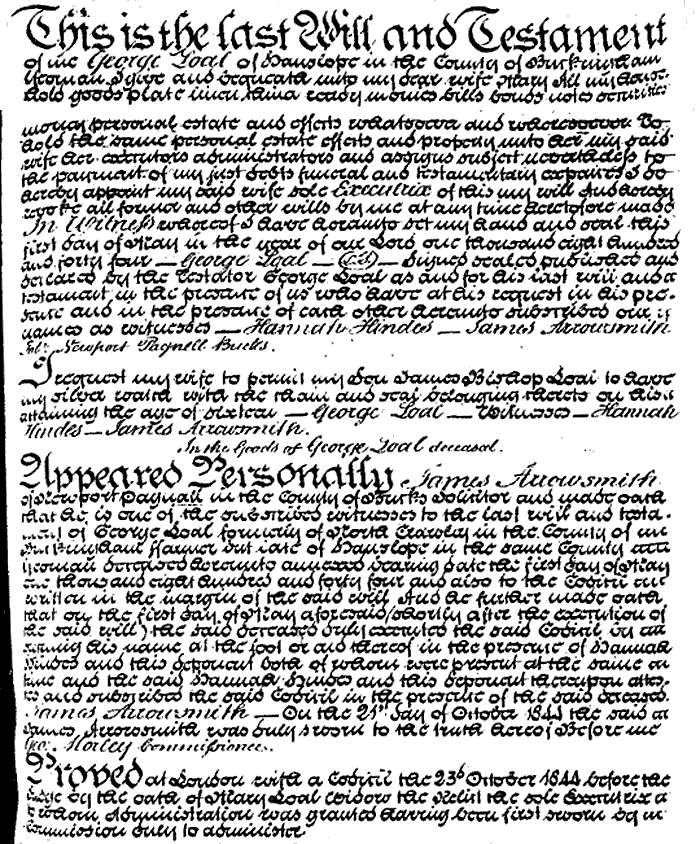 This is the last Will and Testament
of me George Loal of Hanslope in the County of Buckingham
Yeoman I give and bequeath unto my dear wife Mary All my house-
hold goods plate linen china ready monies bills bonds notes securities
money personal estate and effects whatsoever and wheresoever To
hold the same personal estate effects and property unto her my said
wife her executors administrators and assigns subject nevertheless to
the payment of my just debts funeral and testamentary expenses I do
hereby appoint my said wife sole Executrix of this my will And hereby
revoke all former and other wills by me at any time heretofore made
In Witness whereof I have hereunto set my hand and seal this
first day of May in the year of our Lord one thousand eight hundred
and forty four — George Loal — (LS) — Signed sealed published and
declared by the testator George Loal as and for his last will and
testament in the presence of us who have at his request in his pre-
sence and in the presence of each other hereunto subscribed our
names as witnesses — Hannah Hindes — James Arrowsmith
Solr. Newport Pagnell Bucks.
I request my wife to permit my Son James Bishop Loal to have
my silver watch with the chain and seal belonging thereto on his
attaining the age of sixteen — George Loal — Witnesses — Hannah
Hindes — James Arrowsmith.
In the Goods of George Loal deceased.
Appeared Personally James Arrowsmith
of Newport Pagnell in the County of Bucks Solicitor and made oath
that he is one of the subscribed witnesses to the last will and testa-
ment of George Loal formerly of North Crawley in the County of
Buckingham Farmer but late of Hanslope in the same County
Yeoman deceased hereunto annexed bearing date the first day of May
one thousand eight hundred and forty four and also to the Codicil
written in the margin of the said will And he further made oath
that on the first day of May aforesaid (shortly after the execution of
the said will) the said deceased duly executed the said Codicil by
signing his name at the foot or end thereof in the presence of Hannah
Hindes and this deponent both of whom were present at the same
time and the said Hannah Hindes and this deponent thereupon attes-
ted and subscribed the said Codicil in the presence of the said deceased.
James Arrowsmith — On the 21st day of October 1844 the said
James Arrowsmith was duly sworn to the truth hereof Before me
Geo: Morley Commissioner.
Proved at London with a Codicil the 23d October 1844 before the
Judge by the oath of Mary Loal Widow the Relict the sole Executrix
to whom Administration was granted having been first sworn by
Commission duly to administer